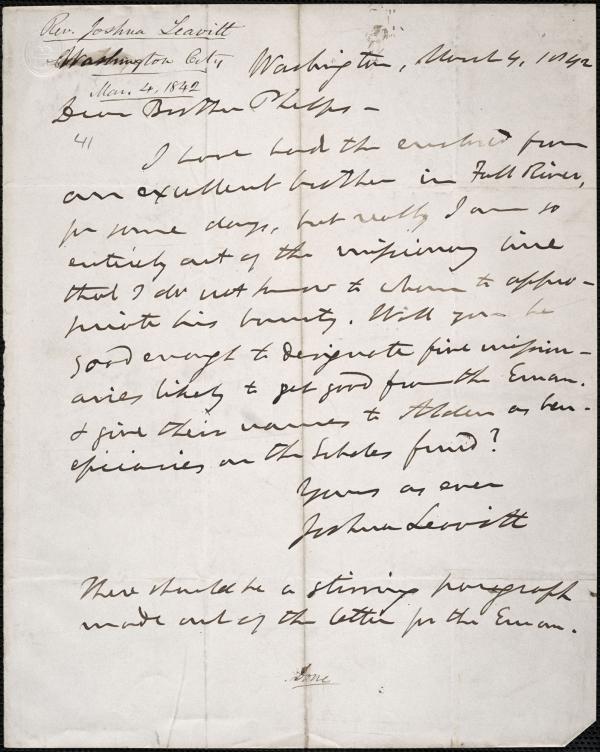 Rev. Joshua Leavitt
Washington City
Mar. 4, 1842
Washington, March 4, 1842
Dear Brother Phelps -
41
I have had the enclosed from
an excellent brother in Fall River,
for some days, but really I am so
entirely out of the missionary line
that I do not know to whom to appro-
priate his bounty. Will you be
good enough to designate five mission-
aries likely to get good from the Eman.
& give their names to Alden as ben-
eficiaries on the Scholes fund?
Yours as ever
Joshua Leavitt
There should be a stirring paragraph
made out of the letter for the Eman.
Done